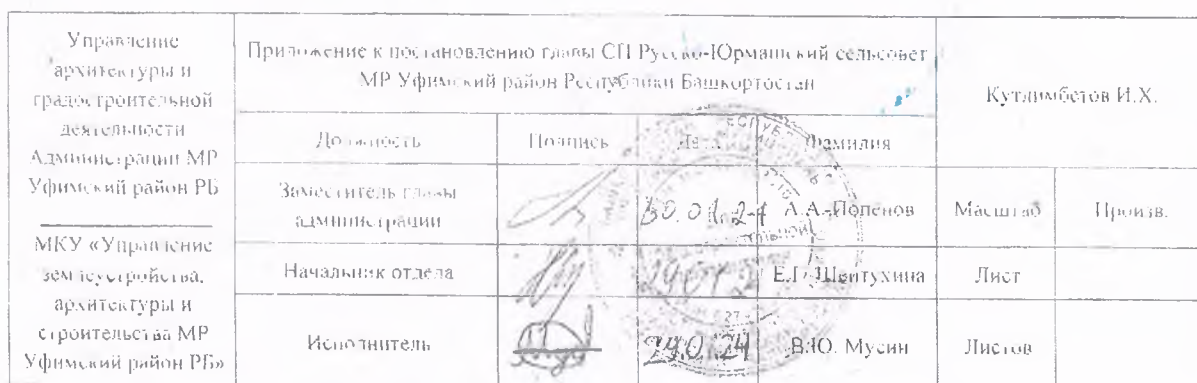 Управление
архитектуры и
градостроительной
деятельности
Администрации МР
Уфимский район РБ
МКУ «Управление
землеустройства,
архитектуры и
строительства МР
Уфимский район РБ»
Приложение к постановлению главы СП Русско-Юрмашский сельсовет
МР Уфимский район Республики Башкортостан
Кутлимбетов И.Х.
Должность Подпись Дата Фамилия
Заместитель главы
администрации
30.01.24 А.А. Попенов Масштаб Произв.
Начальник отдела Е.Г. Шейтухина Лист
Исполнитель В.Ю. Мусин Листов